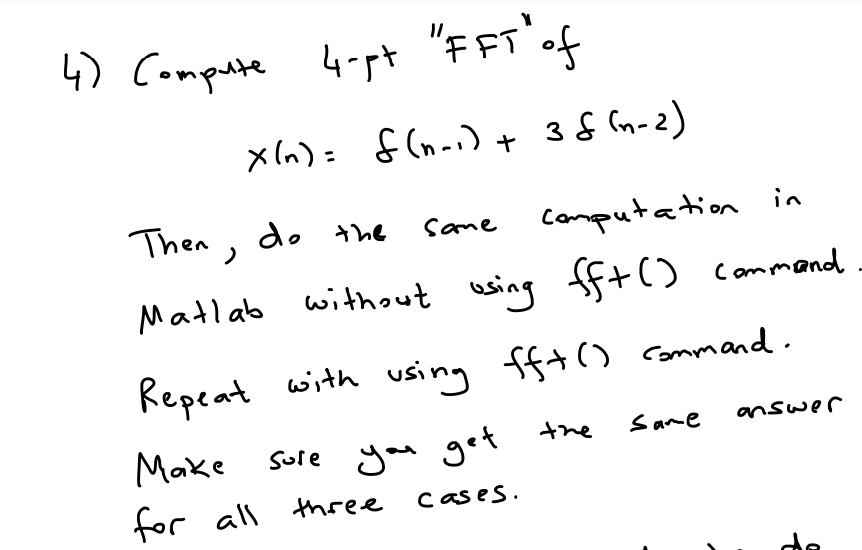 4) Compute 4-pt "FFT" of
x(n) = δ(n-1) + 3 δ(n-2)
Then, do the same computation in
Matlab without using fft() command.
Repeat with using fft() command.
Make sure you get the same answer
for all three cases.
do